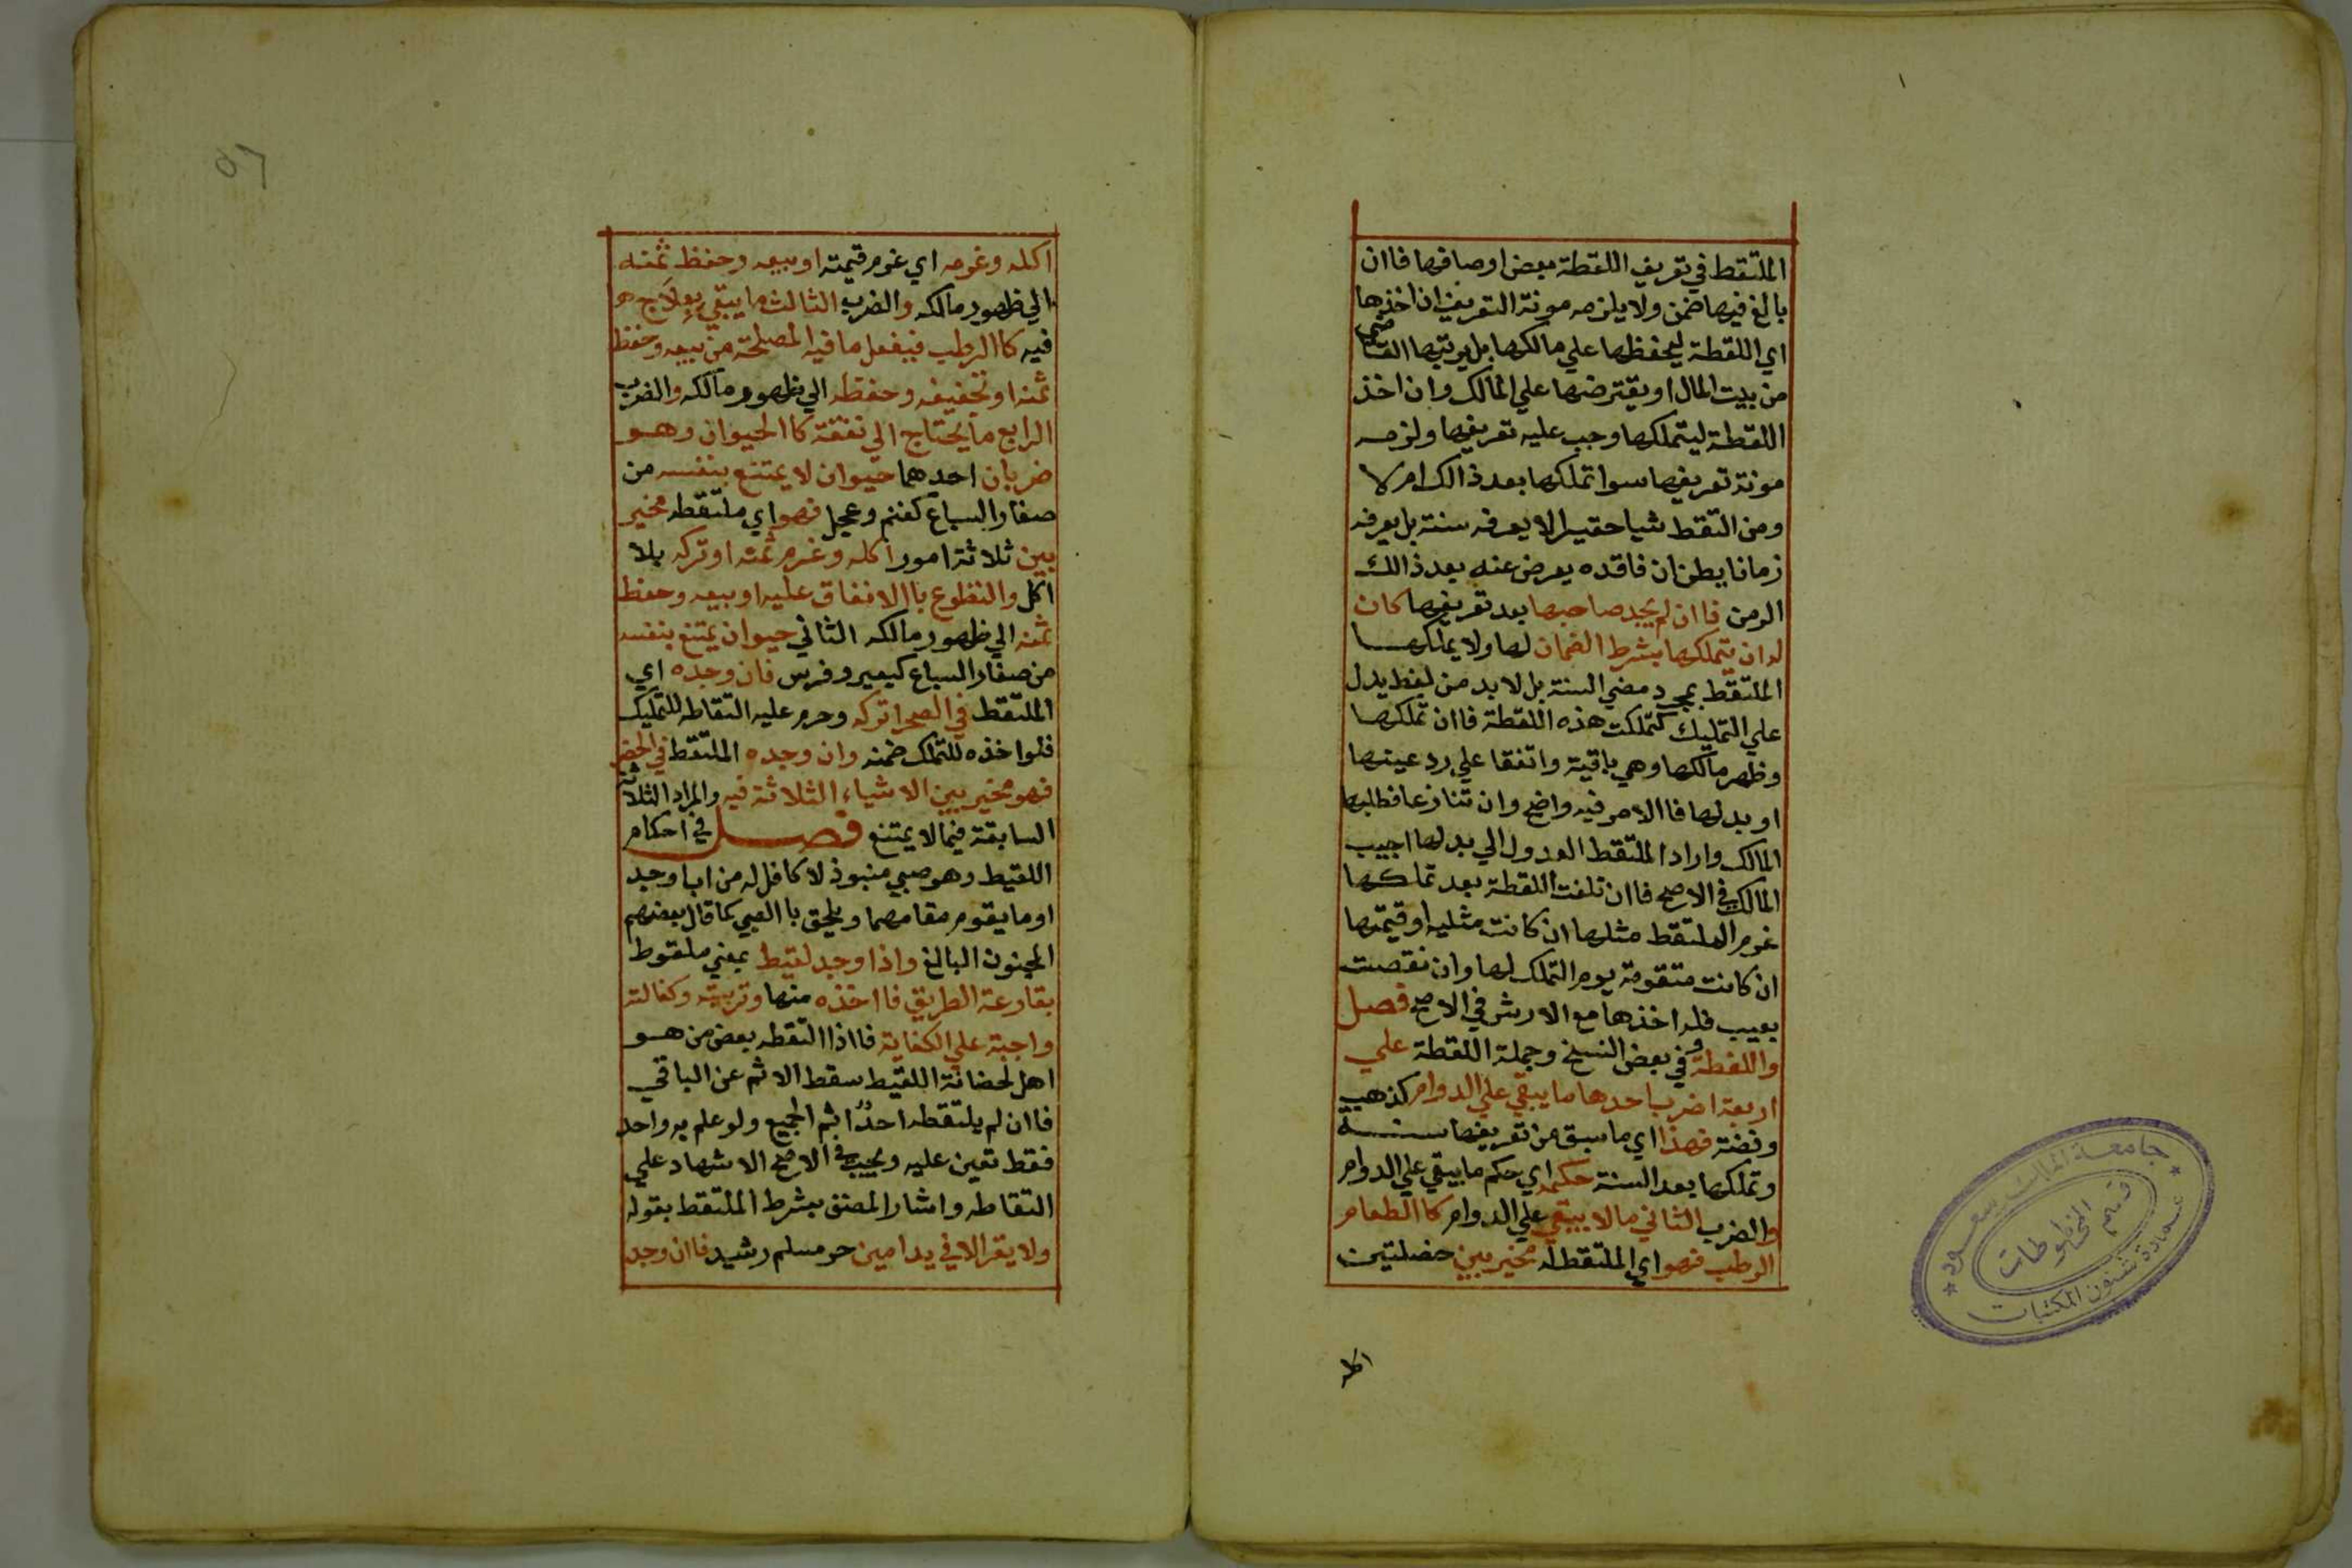 الملتقط في تعريف اللقطة بعض اوصافها فاان
بالغ فيها ضمن ولا يلزمه مونة التعريف ان اخذها
اي اللقطة ليحفظها علي مالكها بل يرتبها القاضي
من بيت المال او يقترضها علي المالك وان اخذ
اللقطة ليتملكها وجب عليه تعريفها ولزمه
مونة تعريفها سوا تملكها بعد ذالك ام لا
ومن التقط شيا حقيرا لا يعرفه سنة بل يعرفه
زمانا يظن ان فاقده يعرض عنه بعد ذالك
الزمن فاان لم يجد صاحبها بعد تعريفها كان
له ان يتملكها بشرط الضمان لها ولا يملكها
الملتقط بمجرد مضي السنة بل لا بد من لفظ يدل
علي التمليك كتملكت هذه اللقطة فاان تملكها
وظهر مالكها وهي باقية واتفقا علي رد عينها
او بدلها فاالامر فيه واضح وان تنازعا فطلبها
المالك واراد الملتقط العدول الي بدلها اجيب
المالك في الاصح فاان تلفت اللقطة بعد تملكها
غرم الملتقط مثلها ان كانت مثليه او قيمتها
ان كانت متقومة يوم التملك لها وان نقصت
بعيب فله اخذها مع الارش في الاصح فصل
واللقطة وفي بعض النسخ وجملة اللقطة علي
اربعة اضرب احدها ما يبقي علي الدوام كذهب
وفضة فهذا اي ما سبق من تعريفها سنة
وتملكها بعد السنة حكمه اي حكم ما يبقي علي الدوام
والضرب الثاني ما لا يبقي علي الدوام كاالطعام
الرطب فهو اي الملتقط له مخير بين خصلتين
جامعة الملك سعود
قسم المخطوطات
عمادة شئون المكتبات
اكله وغرمه اي غرم قيمته او بيعه وحفظ ثمنه
الي ظهور مالكه والضرب الثالث ما يبقي بعلاج
فيه كاالرطب فيفعل ما فيه المصلحة من بيعه وحفظ
ثمنه او تجفيفه وحفظه الي ظهور مالكه والضرب
الرابع ما يحتاج الي نفقة كاالحيوان وهو
ضربان احدهما حيوان لا يمتنع بنفسه من
صغار السباع كغنم وعجل فهو اي ملتقطه مخير
بين ثلاثة امور اكله وغرم ثمنه او تركه بلا
اكل والتطوع باالانفاق عليه او بيعه وحفظ
ثمنه الي ظهور مالكه الثاني حيوان يمتنع بنفسه
من صغار السباع كبعير وفرس فان وجده اي
الملتقط في الصحرا تركه وحرم عليه التقاطه للتمليك
فلوا خذه للتملك ضمنه وان وجده الملتقط في الحضر
فهو مخير بين الاشياء الثلاثة فيه والمراد الثلاثة
السابقة فيما لا يمتنع فصل في احكام
اللقيط وهو صبي منبوذ لا كافل له من اب او جد
او ما يقوم مقامهما ويلحق باالصبي كما قال بعضهم
المجنون البالغ واذا وجد لقيط بمعني ملقوط
بقارعة الطريق فااخذه منها وتربيته وكفالته
واجبة علي الكفاية فااذا التقطه بعض من هو
اهل لحضانة اللقيط سقط الاثم عن الباقي
فاان لم يلتقطه احد اثم الجميع ولو علم به واحد
فقط تعين عليه ويجب في الاصح الاشهاد علي
التقاطه واشار المصنف بشرط الملتقط بقوله
ولا يقر الا في يد امين حر مسلم رشيد فاان وجد